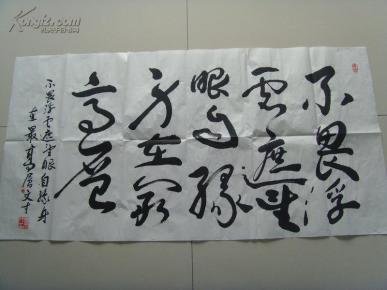 不畏浮
云遮望
眼自缘
身在最
高层
不畏浮云遮望眼自缘身
在最高层文才
Kongfz.com
孔夫子旧书网